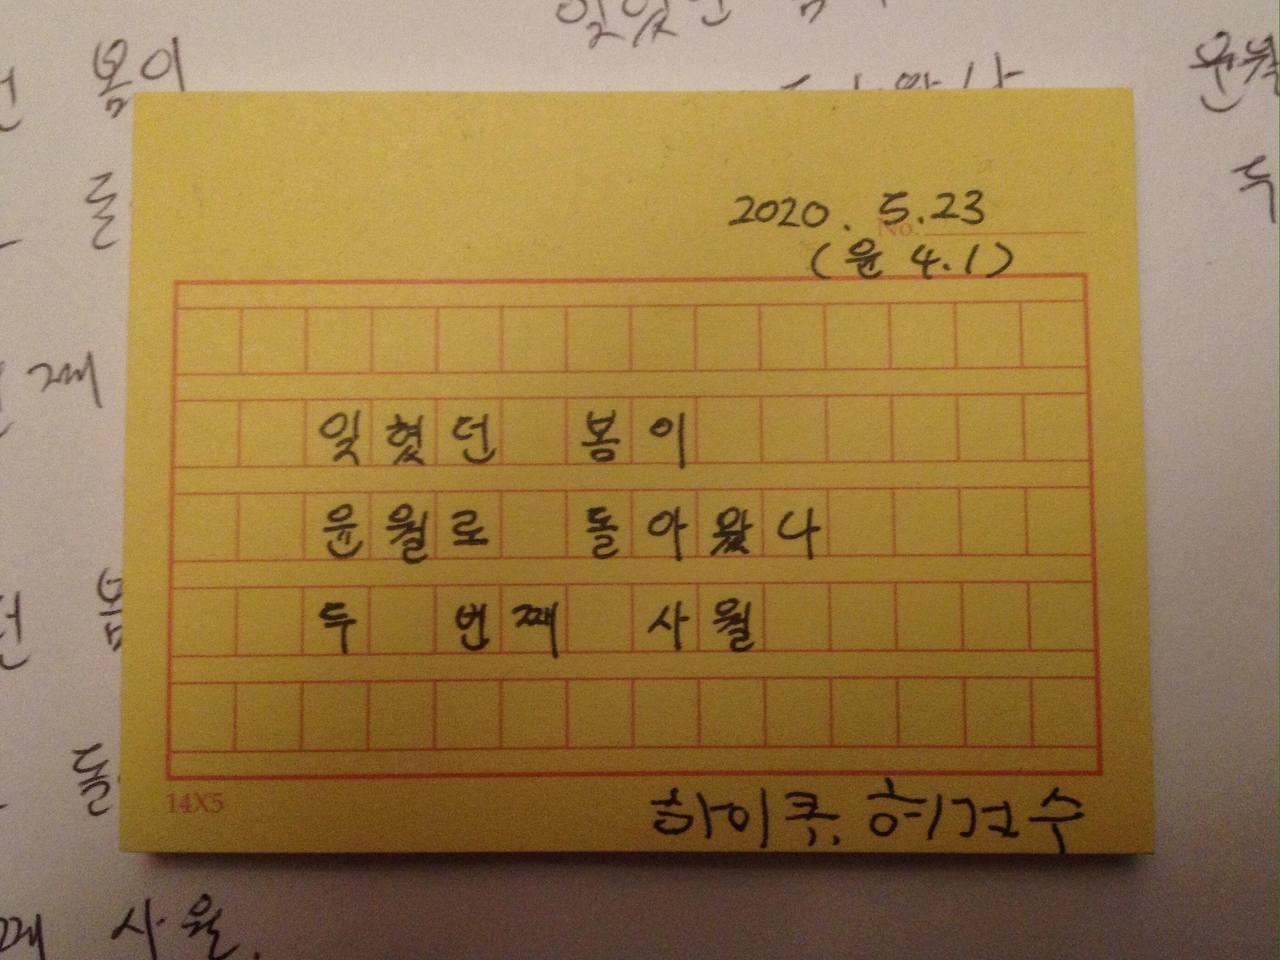 봄이
윤월
2020. 5.23
No.
(윤 4.1)
잊혔던 봄이
윤월로 돌아왔나
두 번째 사월
14X5
하이쿠. 허건수
째 사월.